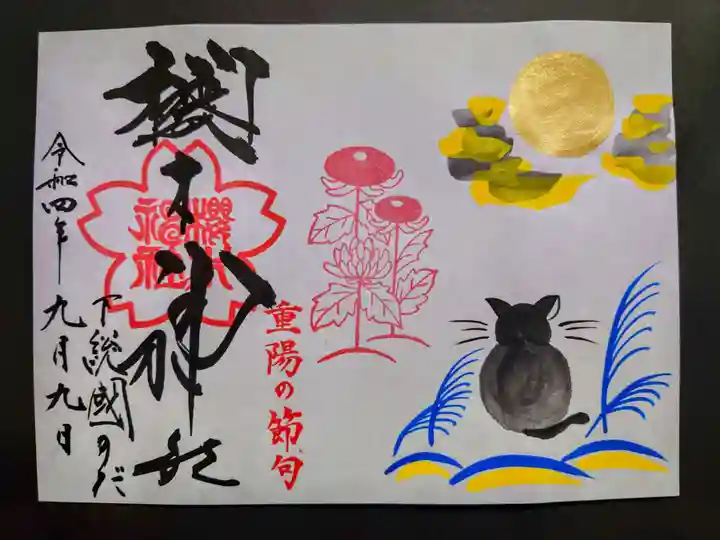 重陽の節句
櫻木神社
櫻木神社
下総國のだ
令和四年
九月九日